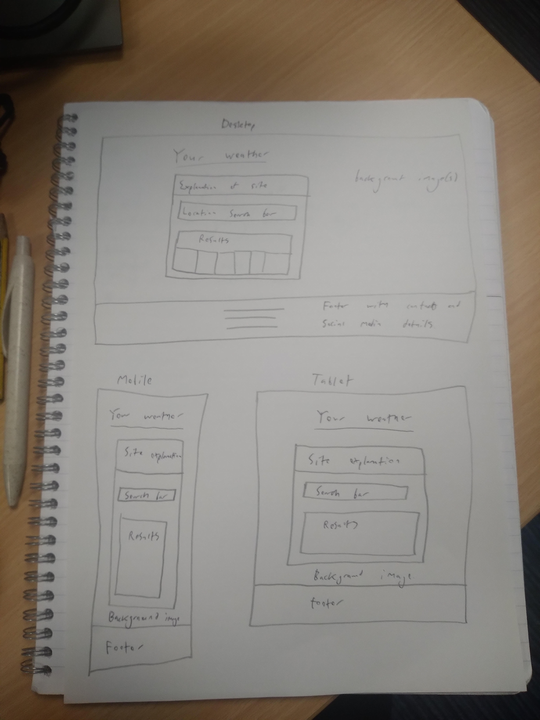 Desktop
Your weather
background image(s)
Explanation of site
Location Search bar
Results
Footer with contacts and
Social media details
Mobile
Your weather
Site explanation
Search bar
Results
Background image
Footer
Tablet
Your weather
Site explanation
Search bar
Results
Background image
footer